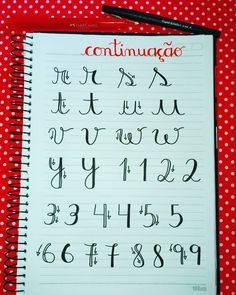 continuação
r r s s
t t u u
v v w w
y y 1 1 2 2
3 3 4 4 5 5
6 6 7 7 8 8 9 9